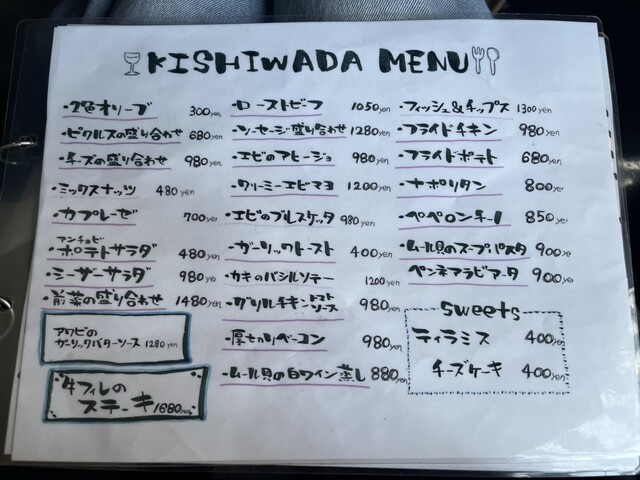 KISHIWADA MENU
・2色オリーブ 300yen
・ピクルスの盛り合わせ 680yen
・チーズの盛り合わせ 980yen
・ミックスナッツ 480yen
・カプレーゼ 700yen
アンチョビ
・ポテトサラダ 480yen
・シーザーサラダ 980yen
・前菜の盛り合わせ 1480yen
アワビの
ガーリックバターソース 1280yen
牛フィレの
ステーキ 1680yen
・ローストビーフ 1050yen
・ソーセージ盛り合わせ 1280yen
・エビのアヒージョ 980yen
・クリーミーエビマヨ 1200yen
・エビのブルスケッタ 980yen
・ガーリックトースト 400yen
・カキのバジルソテー 1200yen
・グリルチキントマトソース 980yen
・厚切りベーコン 980yen
・ムール貝の白ワイン蒸し 880yen
・フィッシュ&チップス 1300yen
・フライドチキン 980yen
・フライドポテト 680yen
・ナポリタン 800yen
・ペペロンチーノ 850yen
・ムール貝のスープパスタ 900ye
ペンネアラビアータ 900yen
sweets
ティラミス 400yen
チーズケーキ 400yen